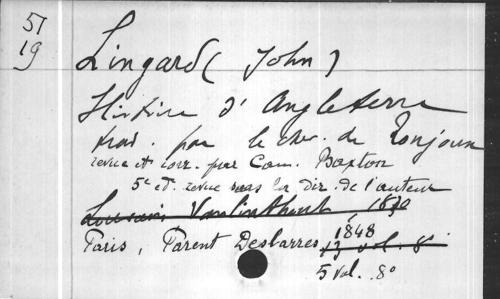 51
19
Lingard (John)
Histoire d'Angleterre
trad. par le chev. de Roujoux
revue et corr. par Cam. Baxton
5e ed. revue sous la dir. de l'auteur
Louvain Vanlinthout, 1830
Paris, Parent Desbarres, 1848
13 vol. 8°
5 vol. 8°